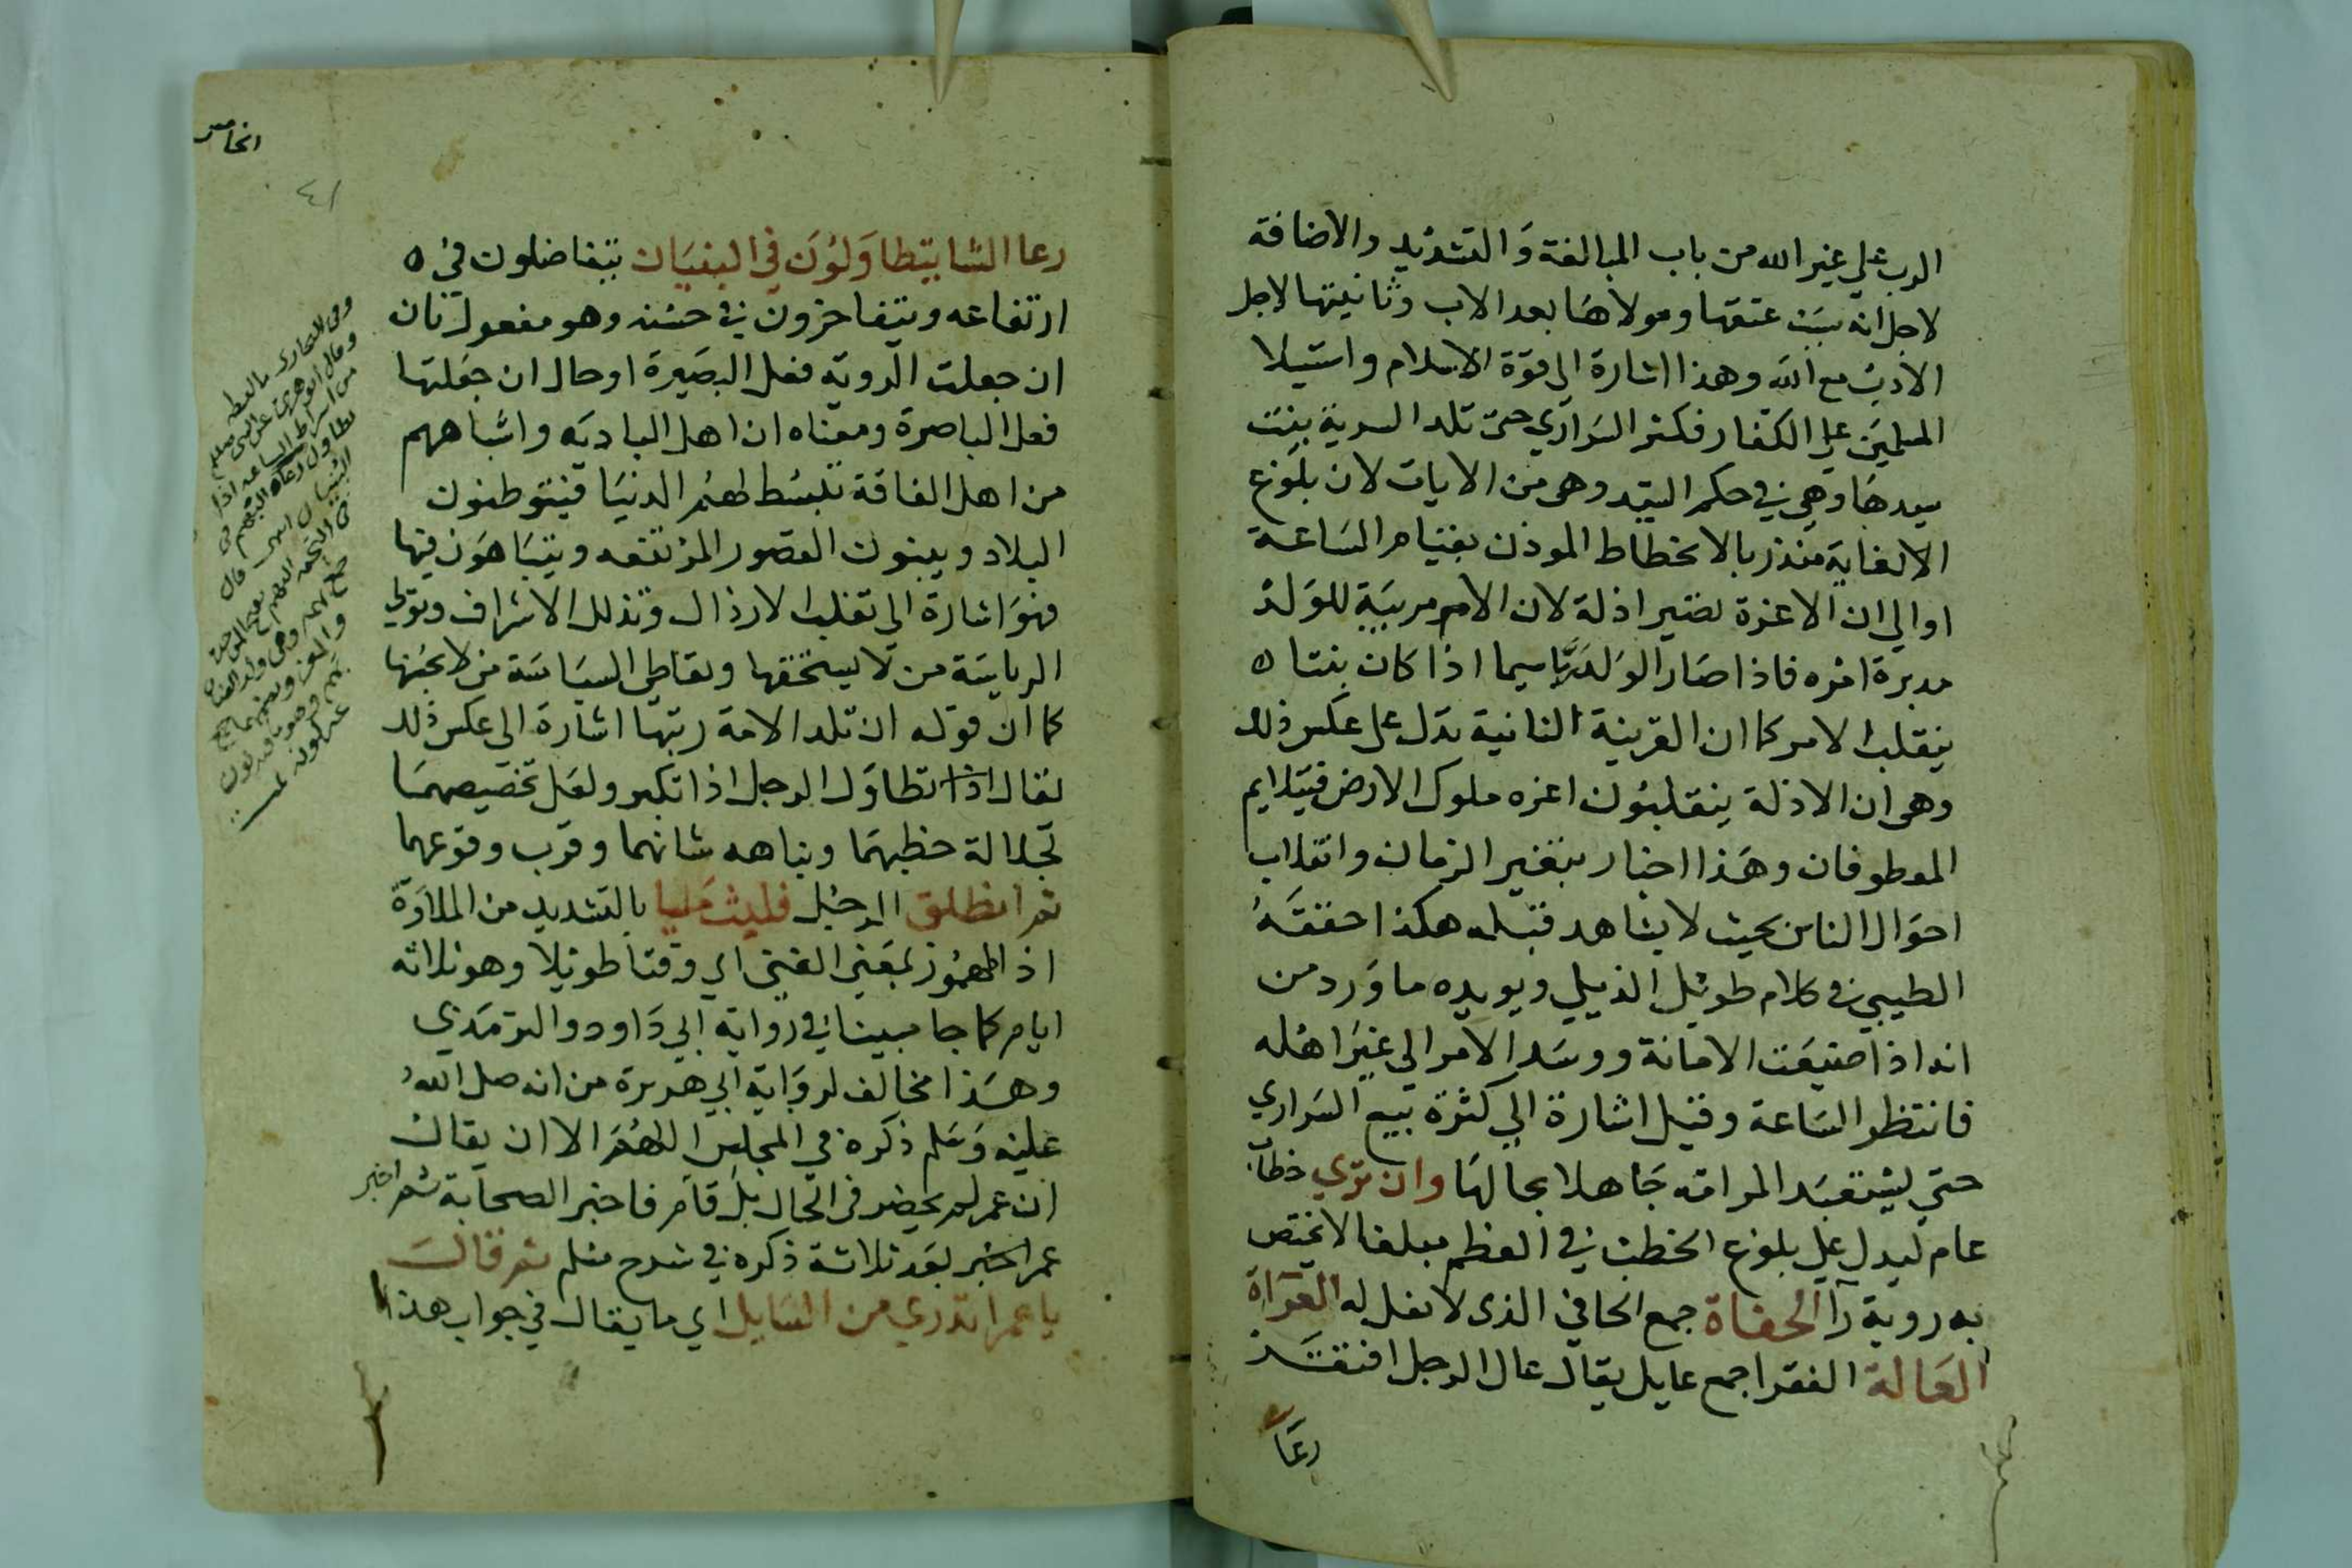 الرب علي غير الله من باب المبالغة والتشديد والاضافة
لاجل انه سبب عتقها ومولاها بعد الاب وثانيتها لاجل
الادب مع الله وهذا اشارة الي قوة الاسلام واستيلا
المسلمين علي الكفار فكثر السراري حتي تلد السرية بنت
سيدها وهي في حكم السيد وهي من الايات لان بلوغ
الالغاية منذر بالانحطاط الموذن بقيام الساعة
او الي ان الاعزة تصير اذلة لان الام مربية للولد
مدبرة امره فاذا صار الولد ربا سيما اذا كان بنتا
ينقلب الامر كما ان القرينة الثانية تدل علي عكس ذلك
وهي ان الاذلة ينقلبون اعزه ملوك الارض فيتلايم
المعطوفان وهذا اخبار بتغير الزمان وانقلاب
احوال الناس بحيث لا يشاهد قبله هكذا حققه
الطيبي في كلام طويل الذيل ويويده ما ورد من
انه اذا ضيعت الامانة ووسد الامر الي غير اهله
فانتظر الساعة وقيل اشارة الي كثرة بيع السراري
حتي يستعبد المرا امه جاهلا بحالها وان تري خطاب
عام ليدل علي بلوغ الخطب في العظم مبلغا لا يختص
به روية را الحفاة جمع الحافي الذي لا نعل له العراة
العالة الفقرا جمع عايل يقال عال الرجل افتقر
رعا
رعا الشا يتطاولون في البنيان يتفاضلون في
ارتفاعه ويتفاخرون في حسنه وهو مفعول ثان
ان جعلت الروية فعل البصيرة او حال ان جعلتها
فعل الباصرة ومعناه ان اهل البادية واشباههم
من اهل الفاقة تبسط لهم الدنيا فيتوطنون
البلاد ويبنون القصور المرتفعه ويتباهون فيها
فهو اشارة الي تغلب الارذال وتذلل الاشراف وتولي
الرياسة من لا يستحقها وتعاطي السياسة من لا يحسنها
كما ان قوله ان تلد الامة ربتها اشارة الي عكس ذلك
يقال اذا تطاول الرجل اذا تكبر ولعل تخصيصهما
لجلالة خطبهما ونباهه شانهما وقرب وقوعهما
ثم انطلق الرجل فلبث مليا بالتشديد من الملاوة
اذ المهموز بمعني الغني اي وقتا طويلا وهو ثلاثه
ايام كما جا مبينا في رواية ابي داود والترمذي
وهذا مخالف لرواية ابي هريرة من انه صلي الله
عليه وسلم ذكره في المجلس اللهم الا ان يقال
ان عمر لم يحضر في الحال بل قام فاخبر الصحابة ثم اخبر
عمر الخبر بعد ثلاثة ذكره في شرح مسلم ثم قال
يا عمر اتدري من السايل اي ما يقال في جواب هذا